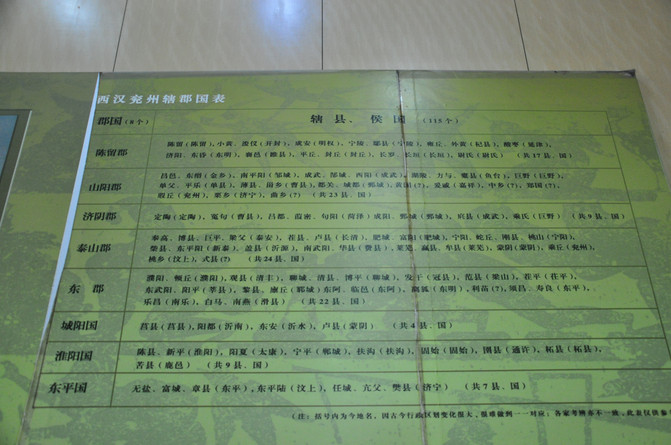 西汉兖州辖郡国表
郡国（8个） 辖县、侯国（115个）
陈留郡 陈留（陈留）,小黄、浚仪（开封）,成安（民权）,宁陵、 雍丘、外黄（杞县）,
济阳、东昏（东明）,襄邑（睢县）,平丘、封丘（封丘）,长罗、长垣（长垣）,尉氏（尉氏） （共17县、国）
山阳郡 昌邑、东缗（金乡）,南平阳（邹城）,成武、 西阳（成武）,湖陵、方与、橐县（鱼台）,巨野（巨野）,
单父、平乐（单县）,薄县、 （曹县）,都关、城都（鄄城）,黄 （?）,爰戚（嘉祥）,中乡（?）,郑国（?）,
瑕丘（兖州）, （济宁）,曲乡（?） （共23县、国）
济阴郡 定陶（定陶）,冤句（曹县）,吕都、葭密、句阳（菏泽）成阳、鄄城（鄄城）, （成武）,乘氏（巨野） （共9县、国）
泰山郡 奉高、博县、巨平、梁父（泰安）,茬县、卢县（长清）,肥城、富阳（肥城）,宁阳、蛇丘、刚县、桃山（宁阳）,
柴县、东平阳（新泰）,盖县（沂源）,南武阳、华县（费县）、莱芜、嬴县、牟县（莱芜）,蒙阴（蒙阴）,乘丘（兖州）,
桃乡（汶上）,式县（?） （共24县、国）
东郡 濮阳、顿丘（濮阳）,观县（清丰）,聊城、清县、博平（聊城）,发干（冠县）,范县（梁山）,茌平（茌平）,
东武阳、阳平（莘县）,黎县、廪丘（郓城）东阿、临邑（东阿）,离狐（东明）,利苗（?）,须昌、寿良（东平）,
乐昌（南乐）,白马、南燕（滑县） （共22县、国）
城阳国 莒县（莒县）,阳都（沂南）,东安（沂水）,卢县（蒙阴） （共4县、国）
淮阳国 陈县、新平（淮阳）,阳夏（太康）,宁平（郸城）,扶沟（扶沟）,固始（固始）,圉县（通许）,柘县（柘县）,
苦县（鹿邑） （共9县、国）
东平国 无盐、富城、章县（东平）,东平陆（汶上）,任城、亢父、樊县（济宁） （共7县、国）
（注：括号内为今地名，因古今行政区划变化很大，很难做到一一对应；各家考辨亦不一致，此表仅供参